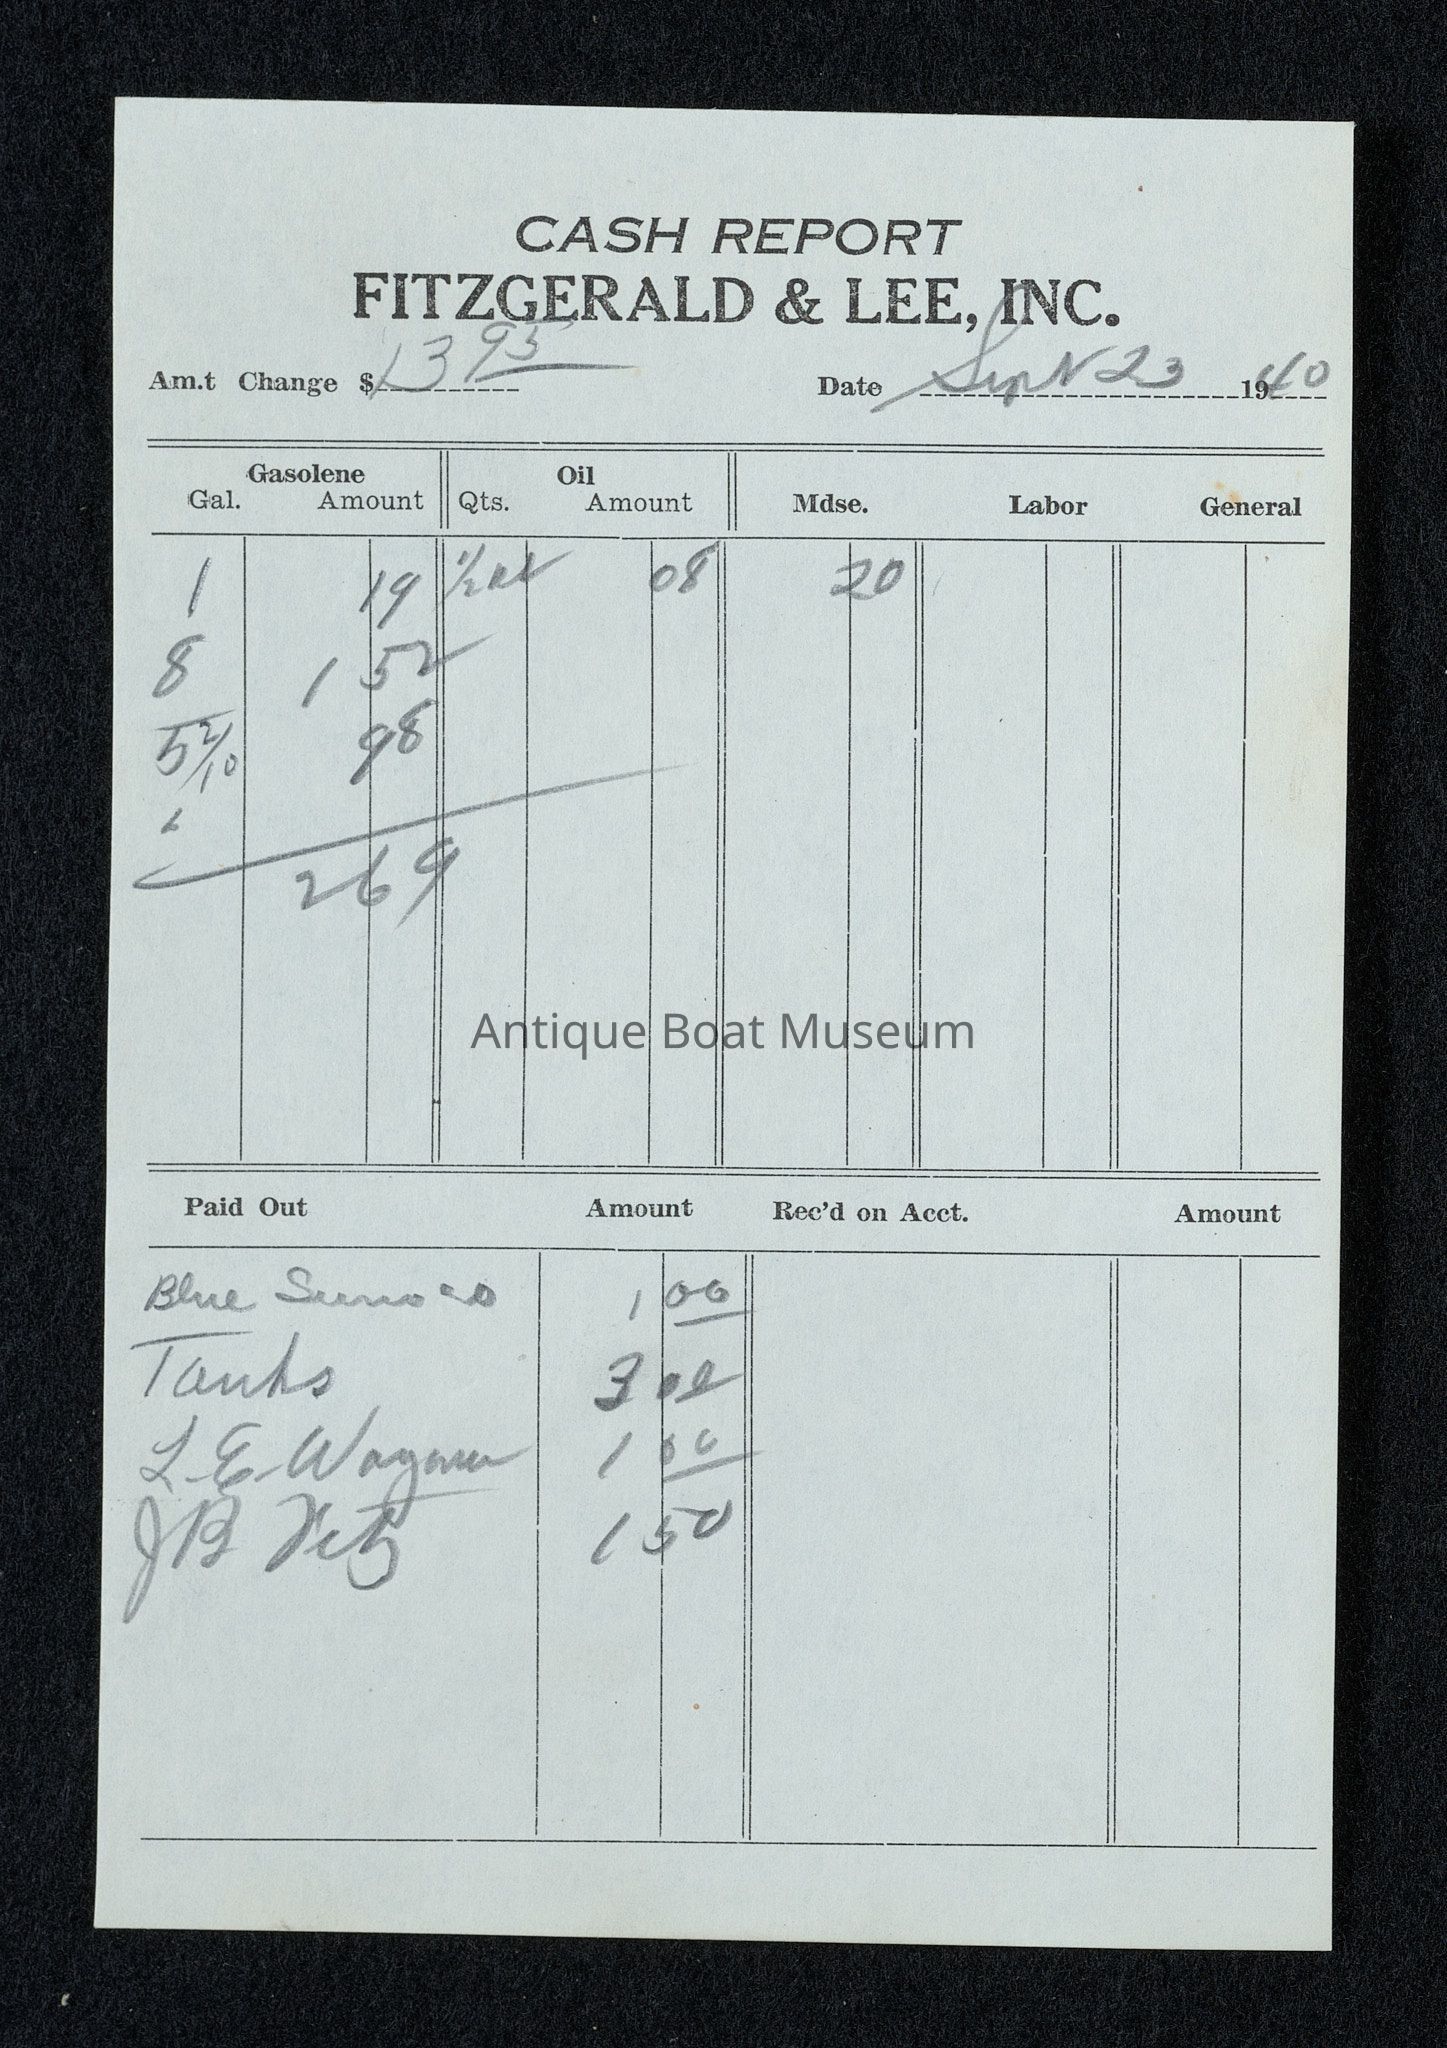 CASH REPORT
FITZGERALD & LEE, INC.
Am.t Change $ 13 95 Date Sept 23 1940
Gasolene Oil
Gal. Amount Qts. Amount Mdse. Labor General
1 19 1/2 08 20
8 1 52
5 2/10 98
2 69
Antique Boat Museum
Paid Out Amount Rec'd on Acct. Amount
Blue Sunoco 1 00
Tanks 3 00
L. E. Wagoner 1 00
J B 1 50